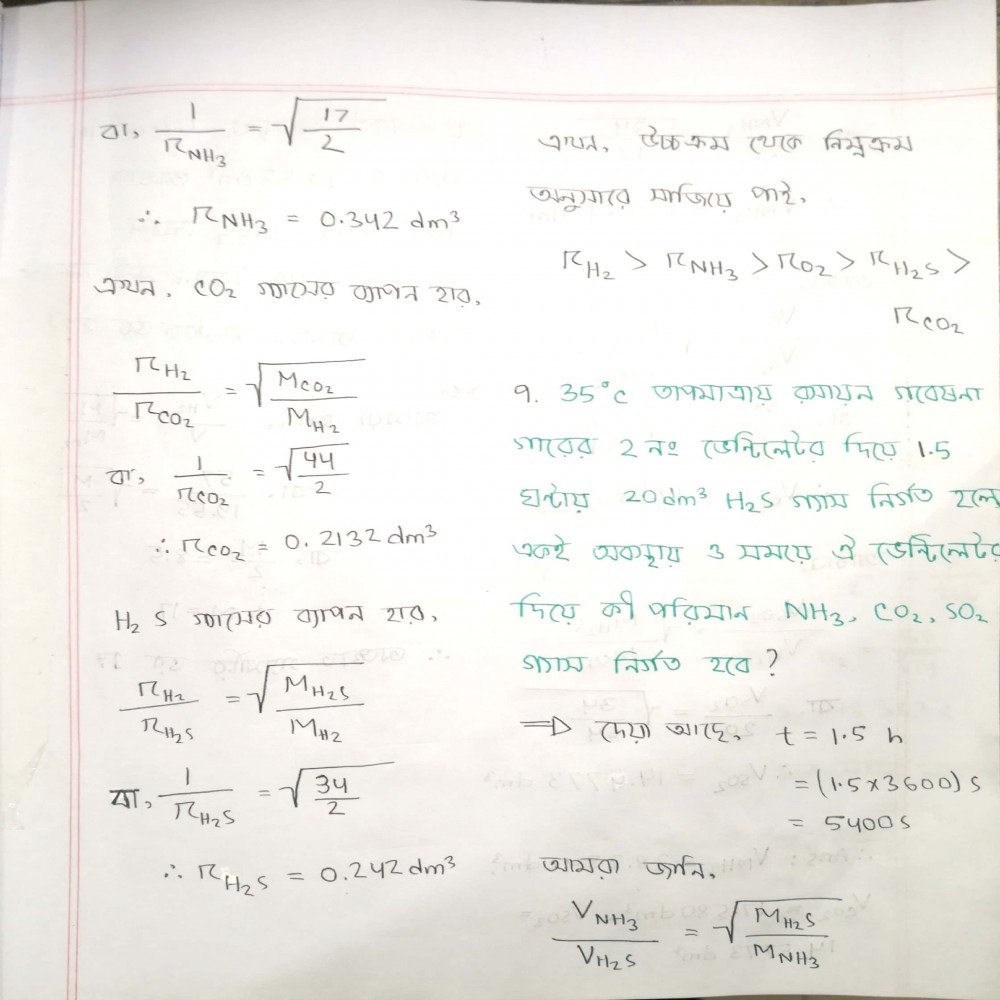 বা, 1/r_NH3 = √(17/2)
∴ r_NH3 = 0.342 dm³
এখন, CO2 গ্যাসের ব্যাপন হার,
r_H2/r_CO2 = √(M_CO2/M_H2)
বা, 1/r_CO2 = √(44/2)
∴ r_CO2 = 0.2132 dm³
H2S গ্যাসের ব্যাপন হার,
r_H2/r_H2S = √(M_H2S/M_H2)
বা, 1/r_H2S = √(34/2)
∴ r_H2S = 0.242 dm³
এখন, উচ্চক্রম থেকে নিম্নক্রম
অনুসারে সাজিয়ে পাই,
r_H2 > r_NH3 > r_O2 > r_H2S >
r_CO2
9. 35°c তাপমাত্রায় রসায়ন গবেষনা
গারের 2 নং ভেন্টিলেটর দিয়ে 1.5
ঘন্টায় 20dm³ H2S গ্যাস নির্গত হলে
একই অবস্থায় ও সময়ে ঐ ভেন্টিলেটর
দিয়ে কী পরিমান NH3, CO2, SO2
গ্যাস নির্গত হবে?
⇒ দেয়া আছে, t = 1.5 h
= (1.5×3600) s
= 5400 s
আমরা জানি,
V_NH3/V_H2S = √(M_H2S/M_NH3)